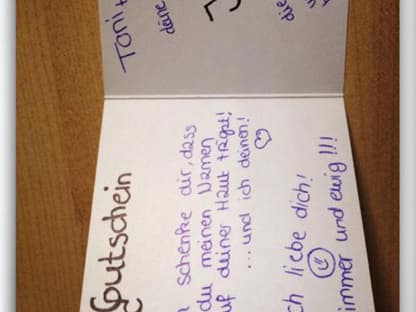 Toni
deine
die
Gutschein
schenke dir, dass
du meinen Namen
auf deiner Haut trägst!
... und ich deinen!
ch liebe dich!
immer und ewig!!!